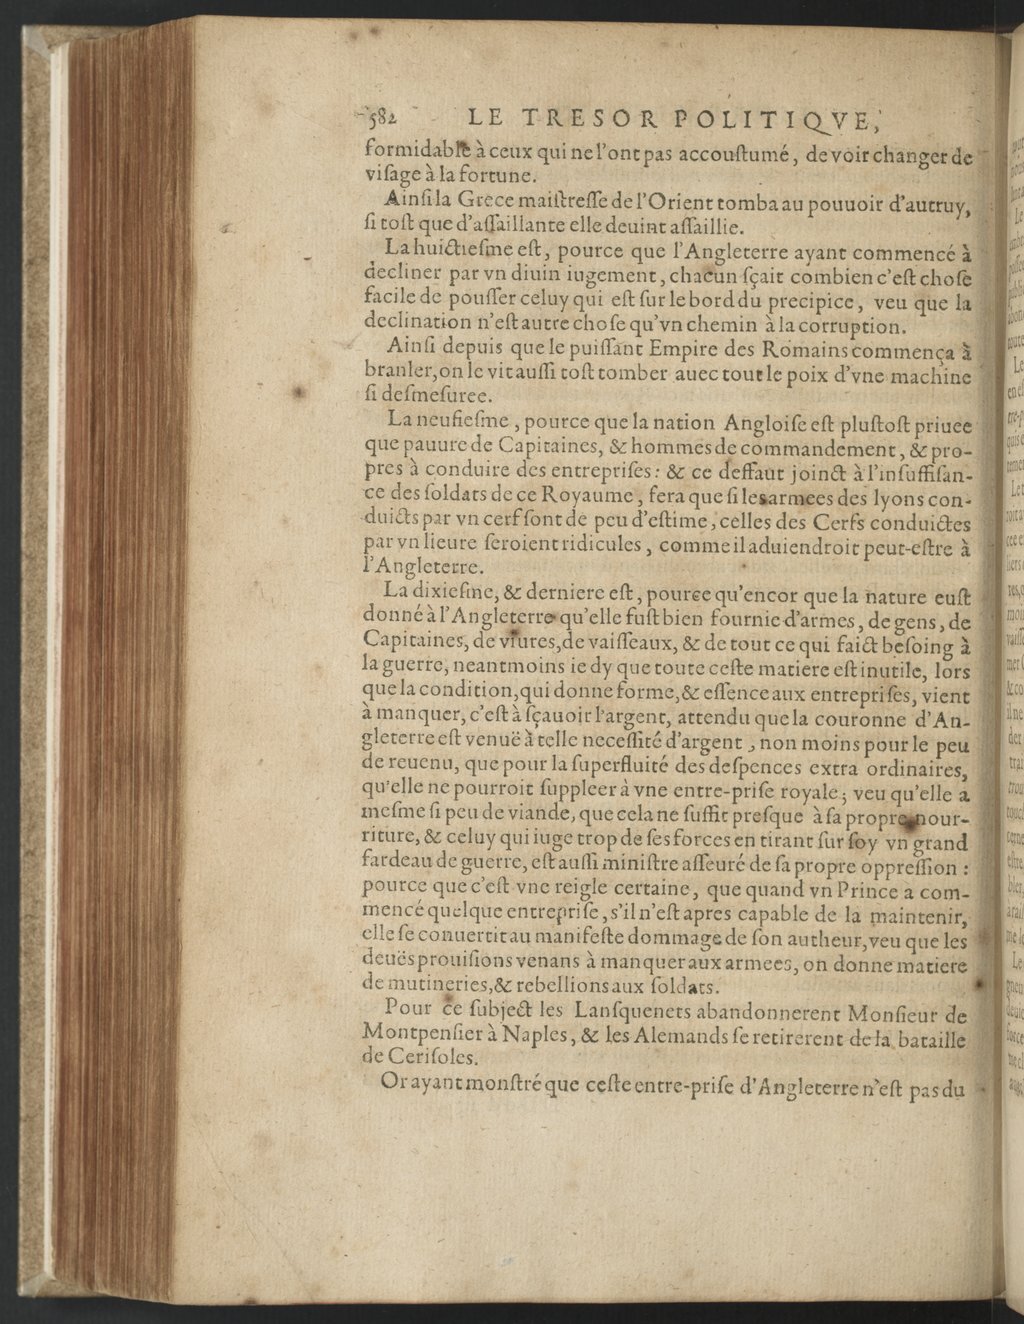 582 LE TRESOR POLITIQVE,
formidable à ceux qui ne l'ont pas accouſtumé, de voir changer de
viſage à la fortune.
Ainſi la Grece maiſtreſſe de l'Orient tomba au pouuoir d'autruy,
ſi toſt que d'aſſaillante elle deuint aſſaillie.
La huictieſme eſt, pource que l'Angleterre ayant commencé à
decliner par vn diuin iugement, chacun ſçait combien c'eſt choſe
facile de pouſſer celuy qui eſt ſur le bord du precipice, veu que la
declination n'eſt autre choſe qu'vn chemin à la corruption.
Ainſi depuis que le puiſſant Empire des Romains commença à
branler, on le vit auſſi toſt tomber auec tout le poix d'vne machine
ſi deſmeſuree.
La neufieſme, pource que la nation Angloiſe eſt pluſtoſt priuee
que pauure de Capitaines, & hommes de commandement, & pro-
pres à conduire des entrepriſes: & ce deffaut joinct à l'inſuffiſan-
ce des ſoldats de ce Royaume, fera que ſi les armees des lyons con-
duicts par vn cerf ſont de peu d'eſtime, celles des Cerfs conduictes
par vn lieure ſeroient ridicules, comme il aduiendroit peut-eſtre à
l'Angleterre.
La dixieſme, & derniere eſt, pource qu'encor que la nature euſt
donné à l'Angleterre qu'elle fuſt bien fournie d'armes, de gens, de
Capitaines, de viures, de vaiſſeaux, & de tout ce qui faict beſoing à
la guerre, neantmoins ie dy que toute ceſte matiere eſt inutile, lors
que la condition, qui donne forme, & eſſence aux entrepriſes, vient
à manquer, c'eſt à ſçauoir l'argent, attendu que la couronne d'An-
gleterre eſt venuë à telle neceſſité d'argent, non moins pour le peu
de reuenu, que pour la ſuperfluité des deſpences extra ordinaires,
qu'elle ne pourroit ſuppleer à vne entre-priſe royale; veu qu'elle a
meſme ſi peu de viande, que cela ne ſuffit preſque à ſa propre nour-
riture, & celuy qui iuge trop de ſes forces en tirant ſur ſoy vn grand
fardeau de guerre, eſt auſſi miniſtre aſſeuré de ſa propre oppreſſion :
pource que c'eſt vne reigle certaine, que quand vn Prince a com-
mencé quelque entrepriſe, s'il n'eſt apres capable de la maintenir,
elle ſe conuertit au manifeſte dommage de ſon autheur, veu que les
deuës prouiſions venans à manquer aux armees, on donne matiere
de mutineries, & rebellions aux ſoldats.
Pour ce ſubject les Lanſquenets abandonnerent Monſieur de
Montpenſier à Naples, & les Alemands ſe retirerent de la bataille
de Ceriſoles.
Or ayant monſtré que ceſte entre-priſe d'Angleterre n'eſt pas du